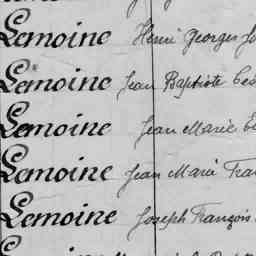 Lemoine Henri Georges
Lemoine Jean Baptiste
Lemoine Jean Marie
Lemoine Jean Marie
Lemoine Joseph François